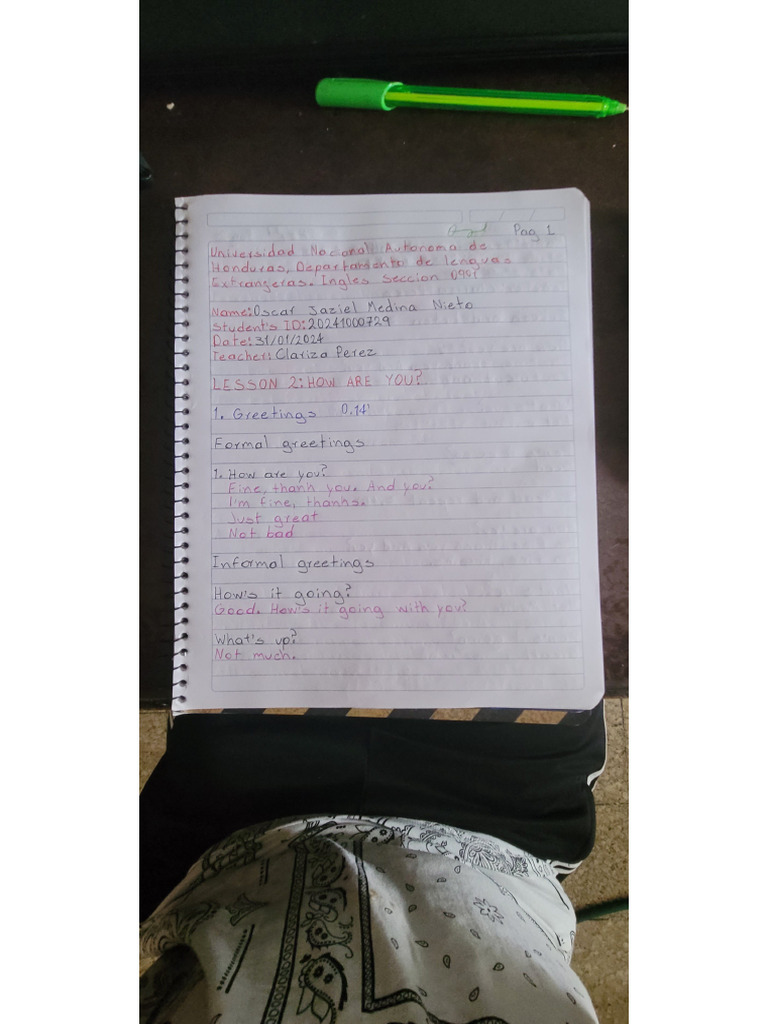 Pag 1
Universidad Nacional Autonoma de
Honduras, Departamento de lenguas
Extrangeras. Ingles Seccion
Name: Oscar Jaziel Medina Nieto
Student's ID: 20241000729
Date: 31/01/2024
Teacher: Clariza Perez
LESSON 2: HOW ARE YOU?
1. Greetings 0.14'
Formal greetings
1. How are you?
Fine, thank you. And you?
I'm fine, thanks.
Just great
Not bad
Informal greetings
How's it going?
Good. How's it going with you?
What's up?
Not much.